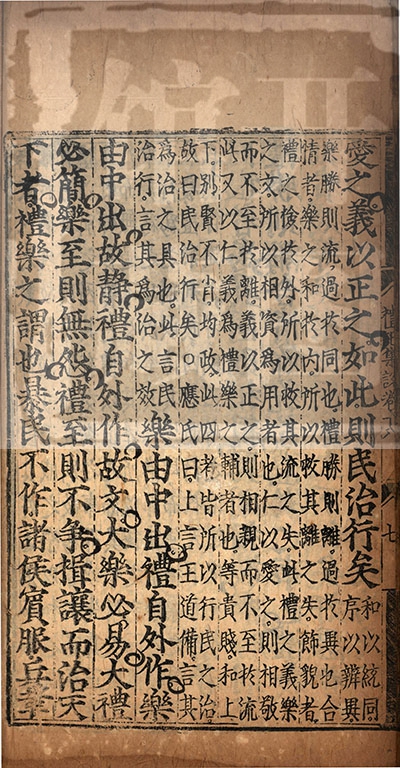 愛之義以正之如此則民治行矣
和以統同
序以辨異
樂勝則流過扵同也禮勝則離過扵異也合
情者樂之和扵内所以救其離之失飾貌者
禮之儉扵外所以救其流之失此禮之義樂
之文所以相資為用者也仁以愛之則相敬
而不至扵離義以正之則相親而不至扵流
此又以仁義為禮樂之輔者也等貴賤和上
下別賢不肖均政此四者皆所以行民之治
故曰民治行矣。應氏曰上言王道備言其
為治之具也此言民
治行言其為治之效
樂由中出禮自外作樂
由中出故静禮自外作故文大樂必易大禮
必簡樂至則無怨禮至則不争揖讓而治天
下者禮樂之謂也暴民不作諸侯賓服兵革
七